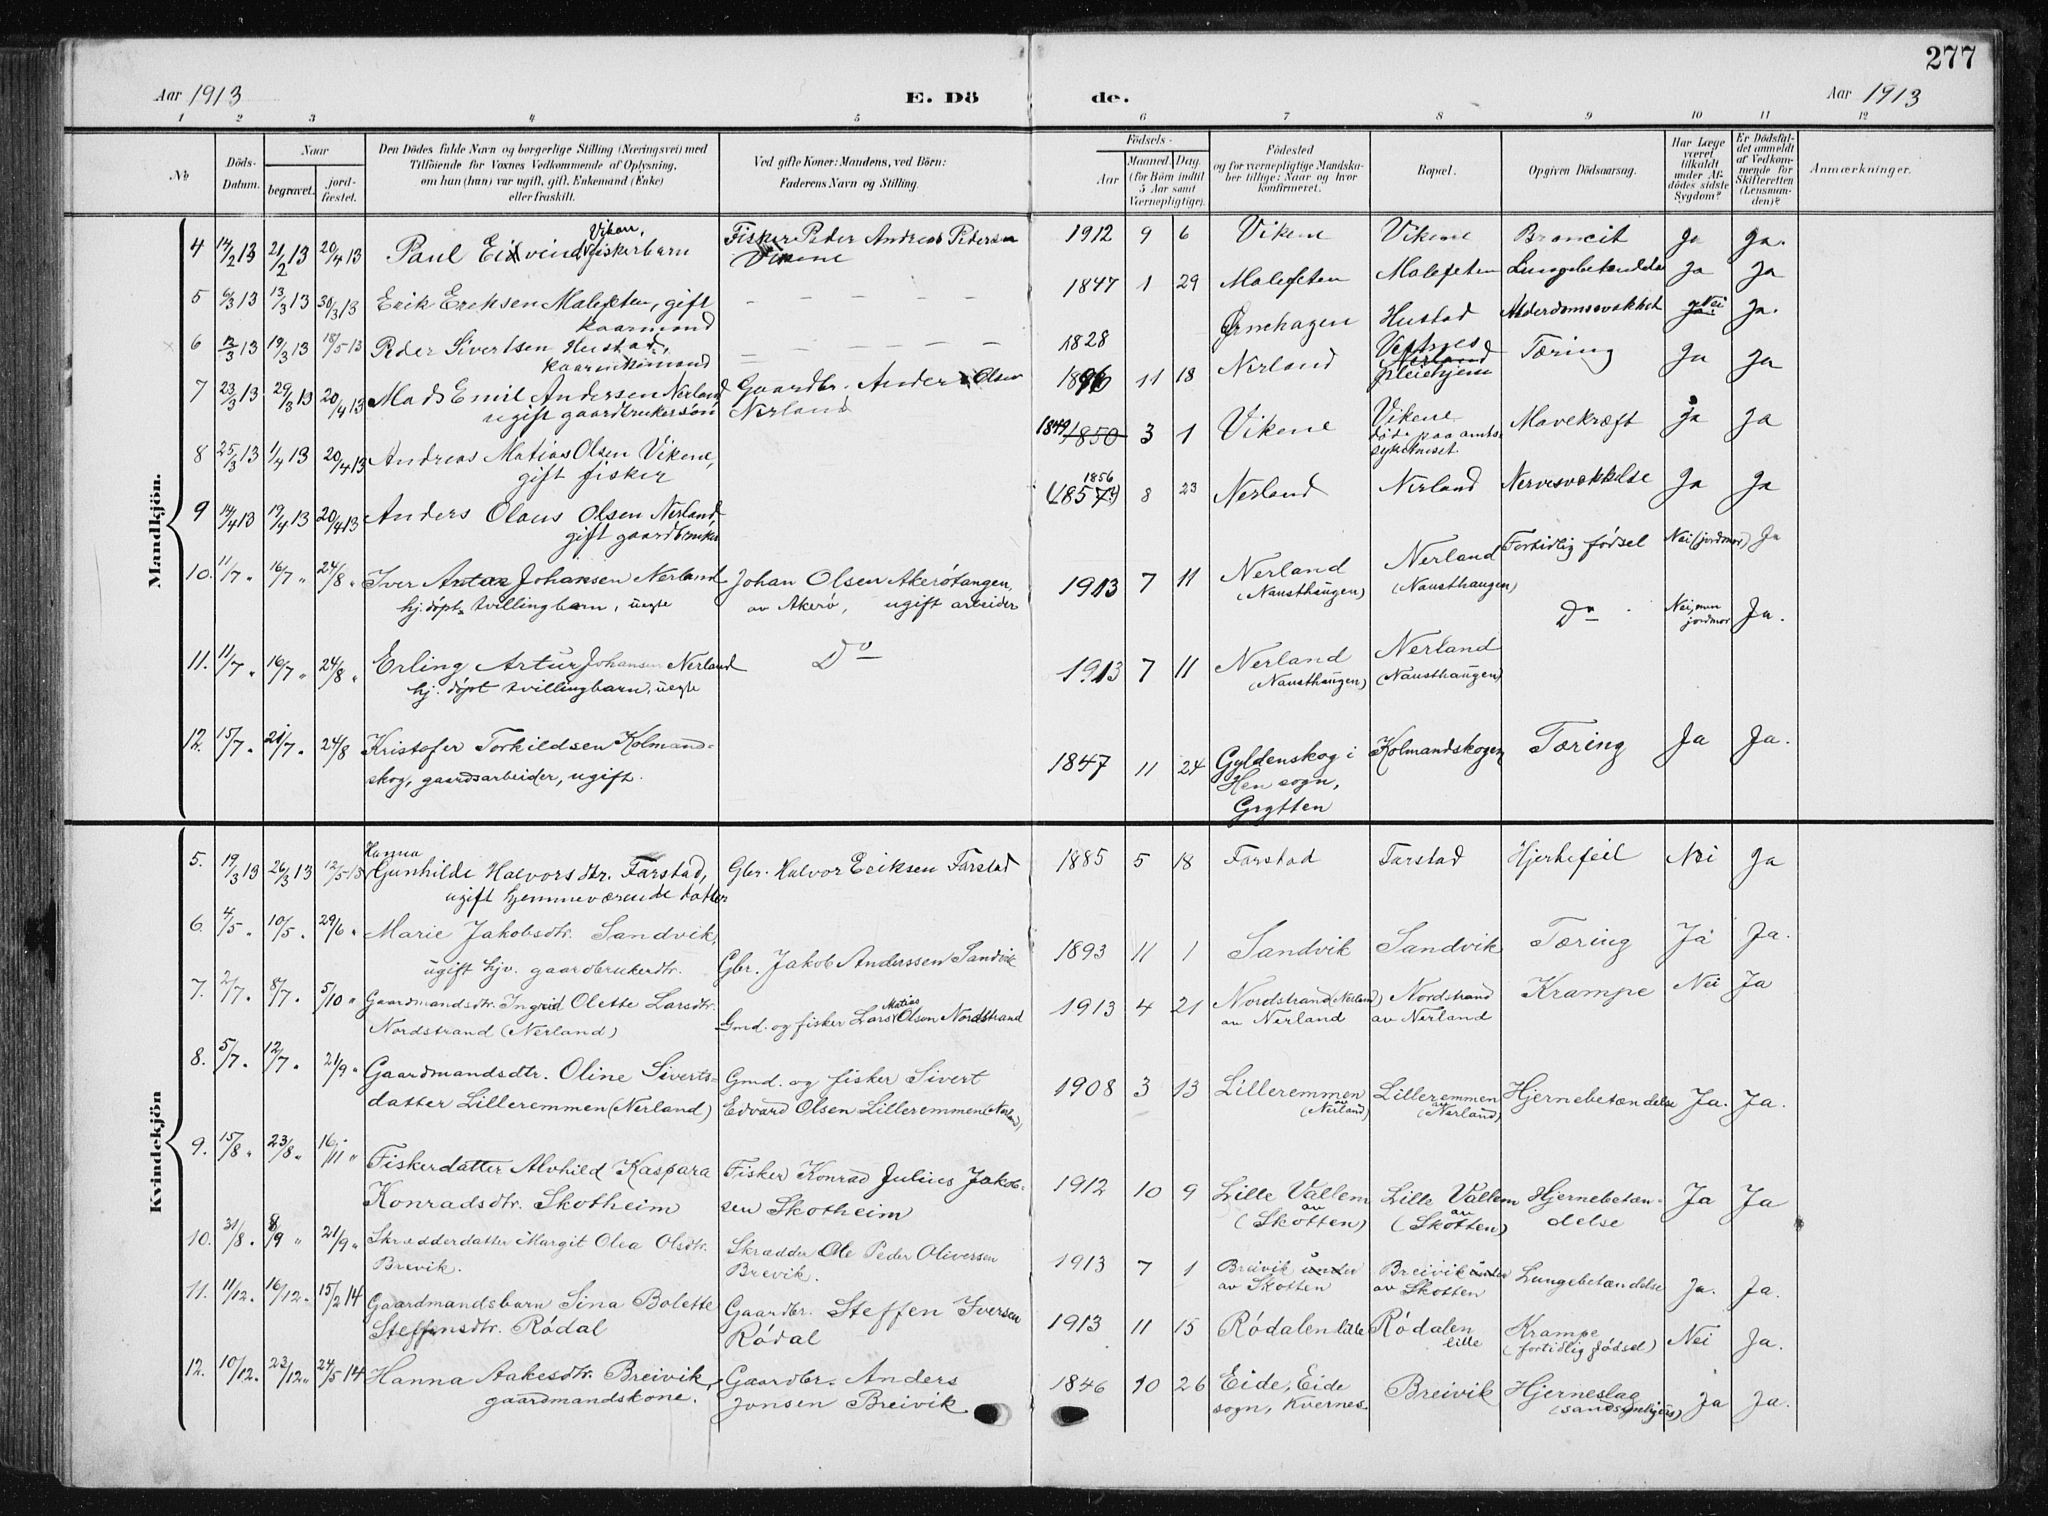 277
Aar 1913
E. Dö
de.
Aar 1913
1 2 3 4 5 6 7 8 9 10 11 12
No
Döds-Datum.
Naar
begravet.
jordfæstet.
Den Dödes fulde Navn og borgerlige Stilling (Næringsvei) med
Tilföiende for Voxnes Vedkommende af Oplysning,
om han (hun) var ugift, gift, Enkemand (Enke)
eller fraskilt.
Ved gifte Koner: Mandens, ved Börn:
Faderens Navn og Stilling.
Födsels-
Aar
Maaned. Dag.
(for Börn indtil
5 Aar samt
Værnepligtige).
Födested
og for værnepligtige Mandska-
ber tillige: Naar og hvor
konfirmeret.
Bopæl.
Opgiven Dödsaarsag.
Har Læge
været
tilkaldt
under Af-
dödes sidste
Sygdom?
Er Dödsfal-
det anmeldt
af Vedkom-
mende for
Skifteretten
(Lensman-
den)?
Anmærkninger.
Mandkjön.
4 14/2 13 21/2 13 20/4 13 Paul Eivind Viken, fiskerbarn Fisker Peder Andreas Pedersen 1912 9 6 Vikene Vikene Broncit Ja Ja.
Vikene
5 6/3 13 13/3 13 30/3 13 Erik Eriksen Malefeten, gift 1847 1 29 Malefeten Malefeten Lungebetændelse Ja Ja
kaarmand
6 12/3 13 19/3 13 18/5 13 Peder Sivertsen Hustad, 1828 Ørnehagen Hustad Alderdomssvakhet Nei Ja.
kaarenkemand
7 23/3 13 29/3 13 20/4 13 Mads Emil Andersen Nerland Gaardbr. Anders Olsen 1896 11 18 Nerland Vestnes Tæring Ja Ja
ugift gaardbrukersøn Nerland Nerland
pleiehjem
8 25/3 13 1/4 13 20/4 13 Andreas Matias Olsen Vikene, 1849 1850 3 1 Vikene Vikene Mavekræft Ja Ja
gift fisker døde paa amts-
sykehuset.
9 14/4 13 19/4 13 20/4 13 Anders Olaus Olsen Nerland, 1856 (1857?) 8 23 Nerland Nerland Nervesvækkelse Ja Ja
gift gaardbruker
10. 11/7 " 16/7 " 24/8 " Iver Anton Johansen Nerland Johan Olsen Akerøtangen, 1913 7 11 Nerland Nerland Fortidlig fødsel Nei (jordmor) Ja
hj. døpt tvillingbarn, uegte av Akerø, ugift arbeider (Nausthaugen) (Nausthaugen)
11. 11/7 " 16/7 " 24/8 " Erling Artur Johansen Nerland Do 1913 7 11 Nerland Nerland Do Nei, men jordmor Ja.
hj. døpt tvillingbarn, uegte (Nausthaugen) (Nausthaugen)
12. 15/7 " 21/7 " 24/8 Kristofer Torkildsen Kolmand- 1847 11 24 Gyldenskog i Kolmandskogen Tæring Ja Ja.
skog, gaardsarbeider, ugift. Hen sogn,
Grytten
Kvindekjön
5. 19/3 13 26/3 13 12/5 13 Hanna Gunhilde Halvorsdtr. Farstad, Gbr. Halvor Eriksen Farstad 1885 5 18 Farstad Farstad Hjertefeil Nei Ja
ugift hjemmeværende datter
6. 4/5 " 10/5 " 29/6 " Marie Jakobsdtr. Sandvik, Gbr. Jakob Anderssen Sandvik 1893 11 1 Sandvik Sandvik Tæring Ja Ja.
ugift hjv. gaardbrukerdtr.
7. 2/7 " 8/7 " 5/10 " Gaardmandsdtr. Ingrid Olette Larsdtr. Gmd. og fisker Lars Matias Olsen Nordstrand 1913 4 21 Nordstrand (Nerland) Nordstrand Krampe Nei Ja
Nordstrand (Nerland) av Nerland av Nerland
8. 5/7 " 12/7 " 21/9 " Gaardmandsdtr. Oline Siverts- Gmd. og fisker Sivert 1908 3 13 Lilleremmen Lilleremmen Hjernebetændelse Ja. Ja.
datter Lilleremmen (Nerland) Edvard Olsen Lilleremmen (Nerland) av (Nerland) av (Nerland)
9. 15/8 " 23/8 " 16/11 " Fiskerdatter Alvhild Kaspara Fisker Konrad Julius Jakob- 1912 10 9 Lille Vallem Lille Vallem Hjernebetæn- Ja Ja
Konradsdtr. Skotheim sen Skotheim av (Skotten) av (Skotten) delse
10. 31/8 " 8/9 " 21/9 " Skrædderdatter Margit Olea Olsdtr. Skrædder Ole Peder Oliversen 1913 7 1 Breivik under Breivik under Lungebetændelse Ja. Ja.
Brevik. Brevik. av Skotten av Skotten
11. 11/12 " 16/12 " 15/2 14 Gaardmandsbarn Sina Bolette Gaardbr. Steffen Iversen 1913 11 15 Rödalen lille Rödalen lille Krampe Nei Ja.
Steffensdtr. Rödal Rödal (fortidlig fødsel)
12. 10/12 " 23/12 " 24/5 14 Hanna Aakesdtr. Breivik, Gaardbr. Anders 1846 10 26 Eide, Eide Breivik Hjerneslag Ja Ja.
gaardmandskone. Jonsen Breivik sogn, Kvernes (sandsynligvis)